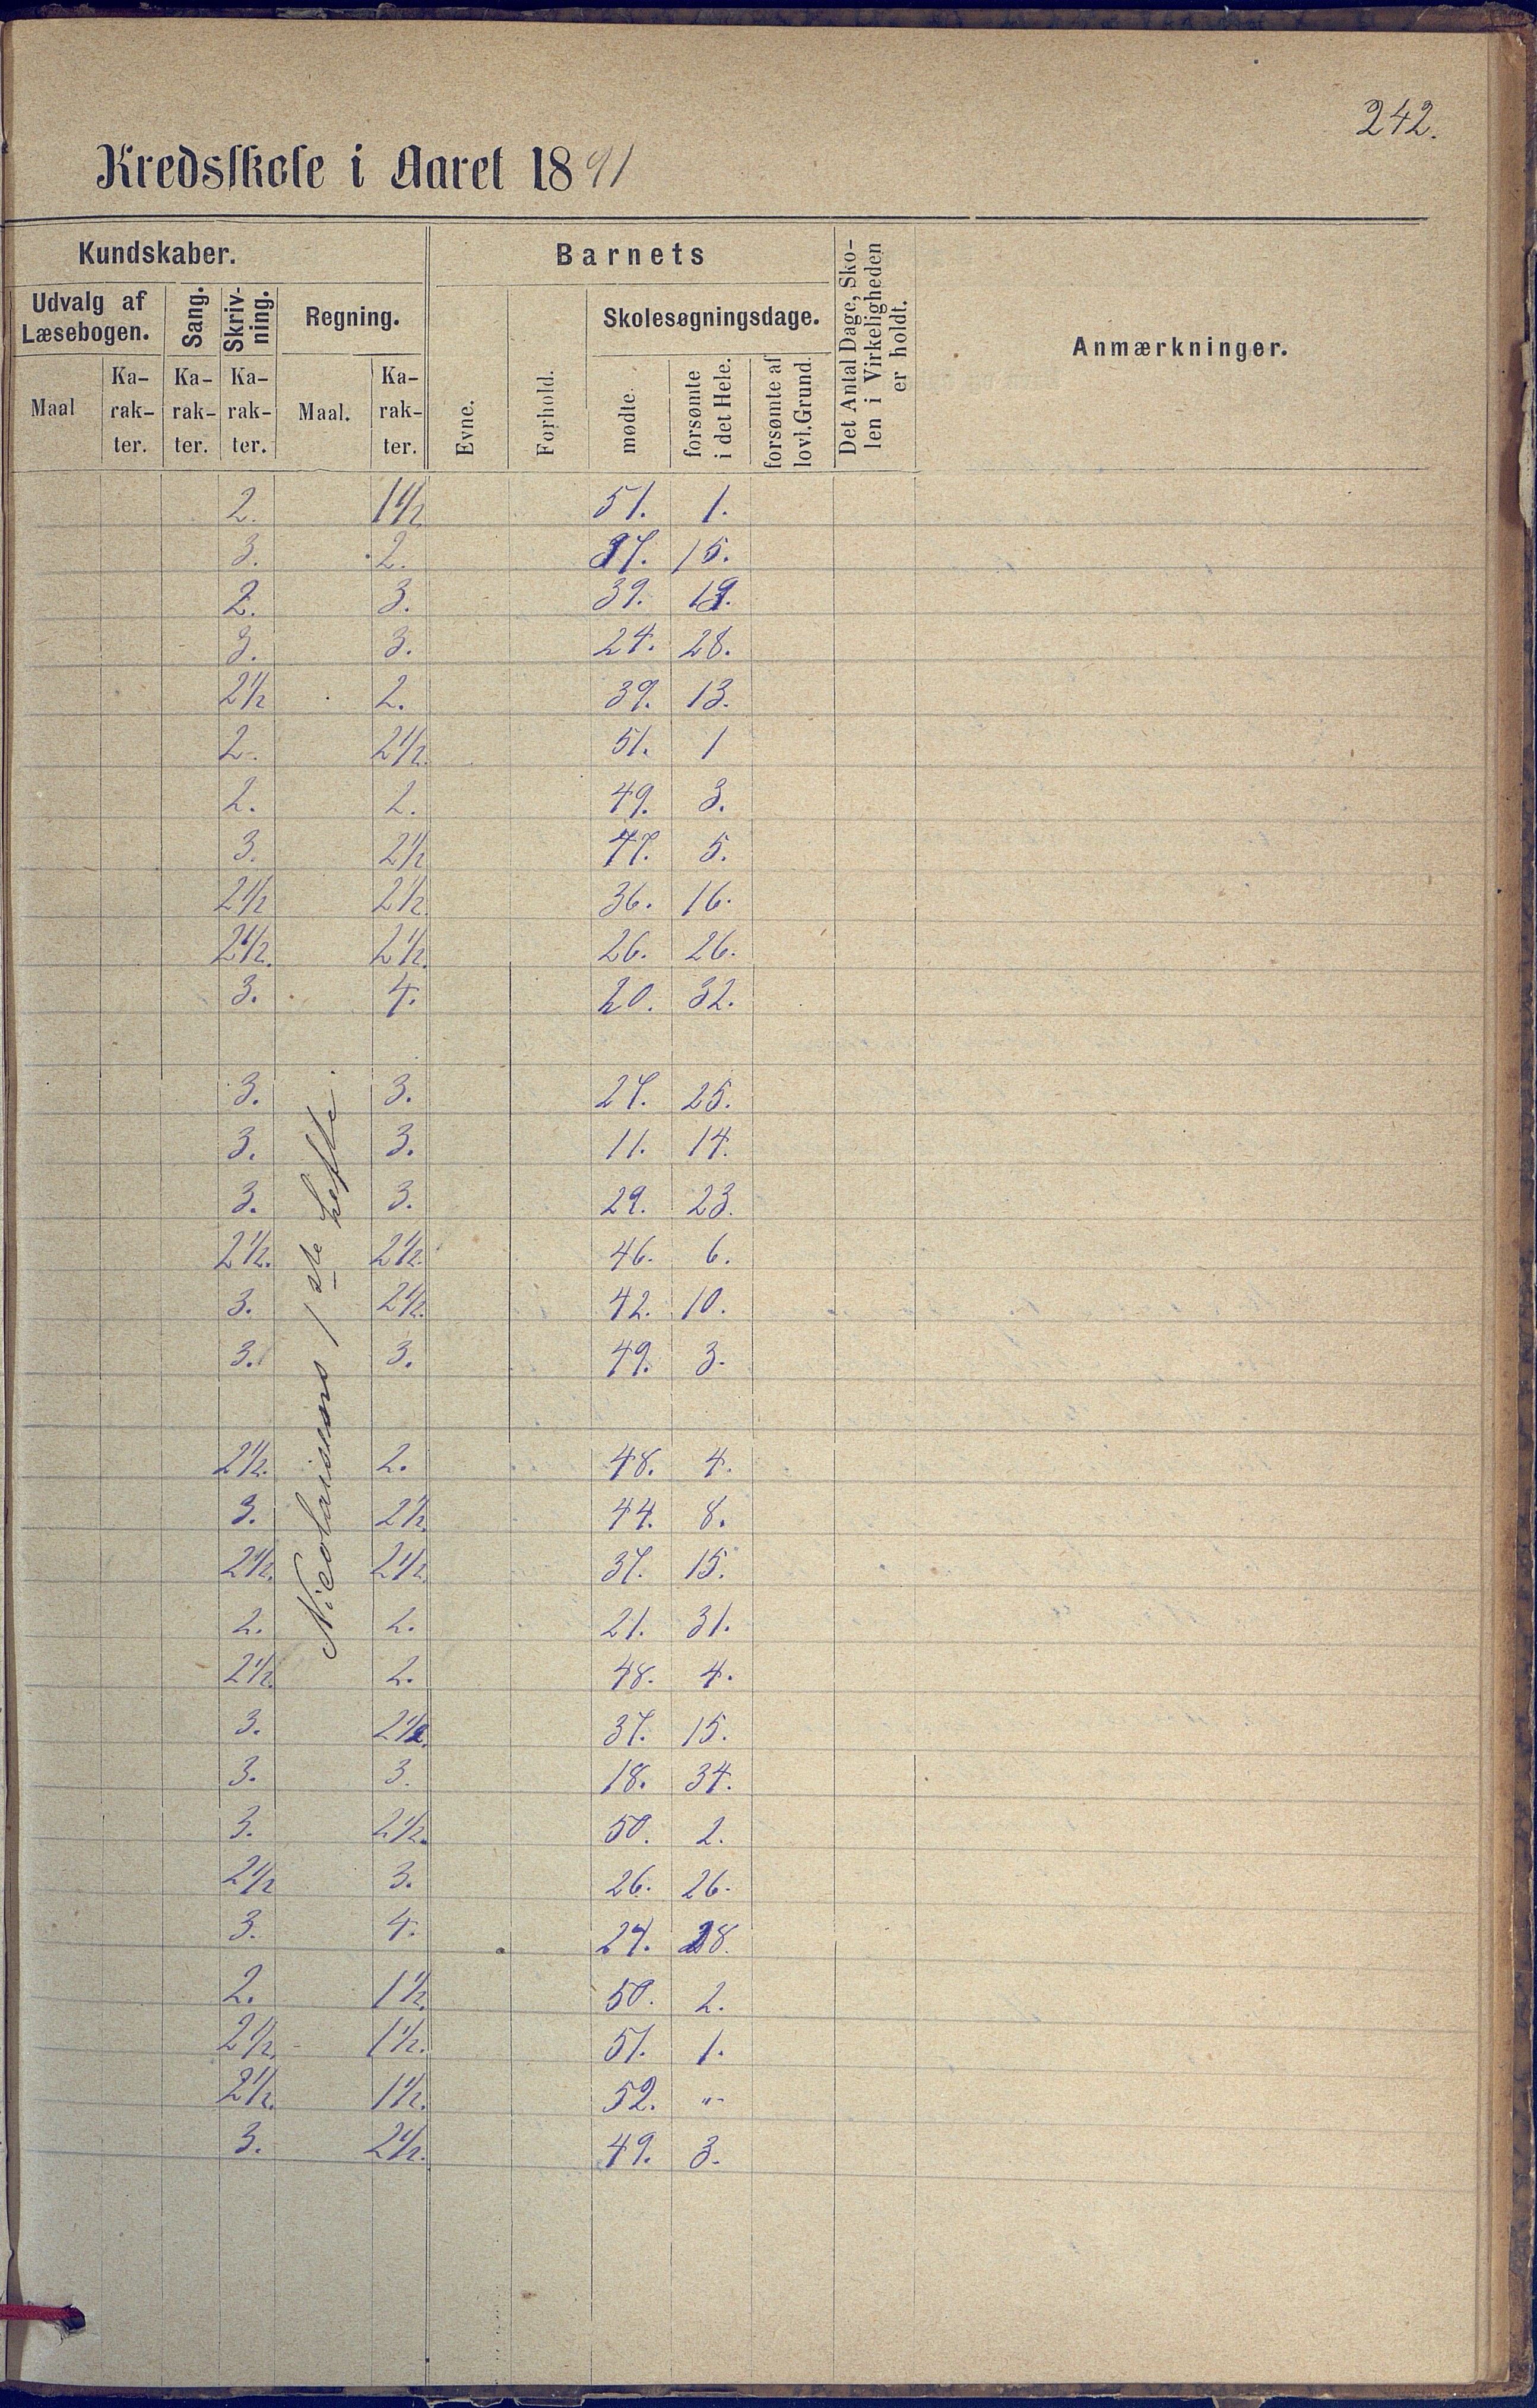 242.
Kredsskole i Aaret 1891
Kundskaber.
Barnets
Det Antal Dage, Sko-
len i Virkeligheden
er holdt.
Anmærkninger.
Udvalg af
Læsebogen.
Sang.
Skriv-
ning.
Regning.
Evne.
Forhold.
Skolesøgningsdage.
Maal
Ka-
rak-
ter.
Ka-
rak-
ter.
Ka-
rak-
ter.
Maal.
Ka-
rak-
ter.
mødte
forsømte
i det Hele.
forsømte af
lovl. Grund.
2. 1 1/2 51. 1.
3. 2. 37. 15.
2. 3. 39. 13.
3. 3. 24. 28.
2 1/2 2. 39. 13.
2. 2 1/2. 51. 1
2. 2. 49. 3.
3. 2 1/2 47. 5.
2 1/2 2 1/2. 36. 16.
2 1/2. 2 1/2. 26. 26.
3. 4. 20. 32.
Nicolaisens 1ste hefte.
3. 3. 27. 25.
3. 3. 11. 14.
3. 3. 29. 23.
2 1/2. 2 1/2. 46. 6.
3. 2 1/2. 42. 10.
3. 3. 49. 3.
2 1/2. 2. 48. 4.
3. 2 1/2. 44. 8.
2 1/2. 2 1/2. 37. 15.
2. 2. 21. 31.
2 1/2. 2. 48. 4.
3. 2 1/2. 37. 15.
3. 3. 18. 34.
3. 2 1/2. 50. 2.
2 1/2 3. 26. 26.
3. 4. 24. 28.
2. 1 1/2. 50. 2.
2 1/2. 1 1/2. 51. 1.
2 1/2. 1 1/2. 52. "
3. 2 1/2. 49. 3.